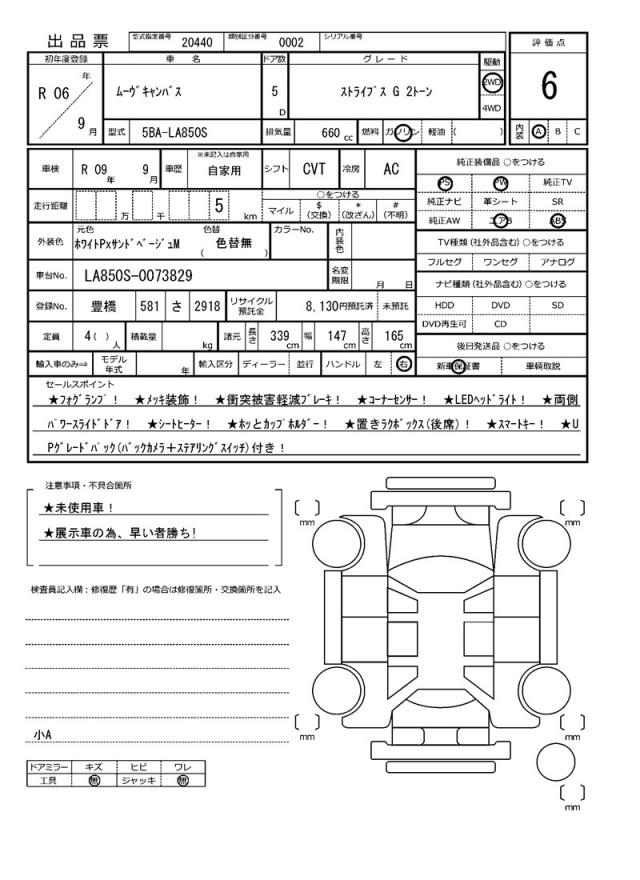 出品票 型式指定番号 20440 類別区分番号 0002 シリアル番号
評価点
初年度登録 車名 ドア数 グレード 駆動
R 06 年 9 月 ムーヴキャンバス 5 D ストライプス G 2トーン 2WD 4WD 6
型式 5BA-LA850S 排気量 660 cc 燃料 ガソリン 軽油 ( ) 内装 A B C
車検 R 09 年 9 月 車歴 ※未記入は自家用 自家用 シフト CVT 冷房 AC
走行距離 万 千 5 km ○をつける マイル $(交換) *(改ざん) #(不明)
外装色 元色 ホワイトPxサンドベージュM 色替 ( 色替無 ) カラーNo. 内装色
車台No. LA850S-0073829 名変期限 月 日
登録No. 豊橋 581 さ 2918 リサイクル預託金 8,130円預託済 未預託
定員 4( ) 人 積載量 kg 諸元 長さ 339 cm 幅 147 cm 高さ 165 cm
輸入車のみ⇒ モデル年式 年 輸入区分 ディーラー 並行 ハンドル 左 右
純正装備品 ○をつける
PS PW 純正TV
純正ナビ 革シート SR
純正AW エアB ABS
TV種類(社外品含む)○をつける
フルセグ ワンセグ アナログ
ナビ種類(社外品含む)○をつける
HDD DVD SD
DVD再生可 CD
後日発送品 ○をつける
新車保証書 車輌取説
セールスポイント
★フォグランプ! ★メッキ装飾! ★衝突被害軽減ブレーキ! ★コーナーセンサー! ★LEDヘッドライト! ★両側
パワースライドドア! ★シートヒーター! ★ホッとカップホルダー! ★置きラクボックス(後席)! ★スマートキー! ★U
Pグレードパック(バックカメラ+ステアリングスイッチ)付き!
注意事項・不具合箇所
★未使用車!
★展示車の為、早い者勝ち!
検査員記入欄:修復歴「有」の場合は修復箇所・交換箇所を記入
小A
ドアミラー キズ ヒビ ワレ
工具 無 ジャッキ 無
[ ] mm
[ ] mm
[ ] mm
[ ] mm
[ ] mm